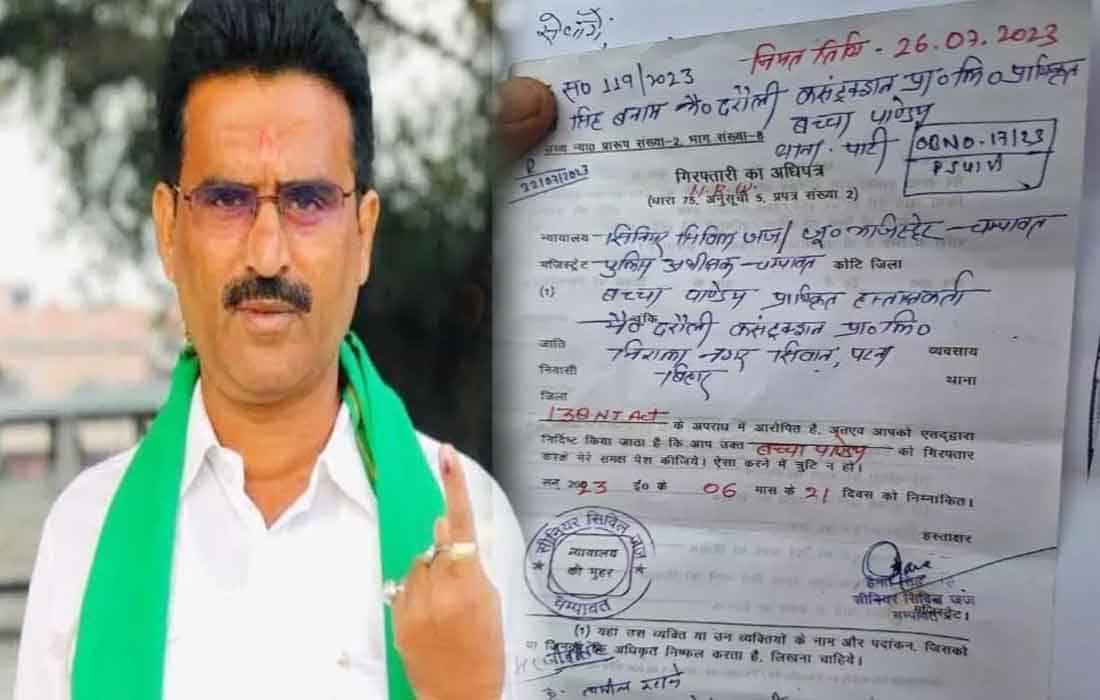 सेवामें,
स० 119/2023 नियत तिथि - 26.07.2023
सिंह बनाम मै० दरौली कंसट्रक्शन प्रा० लि० प्राधिकृत
बच्चा पाण्डेय
न्याय प्रारूप संख्या-2, भाग संख्या-8
थाना - पाटी
OBNO-17/23
R
22/07/2023
गिरफ्तारी का अधिपत्र
N.B.W.
(धारा 75, अनुसूची 5, प्रपत्र संख्या 2)
न्यायालय सिनियर सिविल जज/ मजिस्ट्रेट - चम्पावत
मजिस्ट्रेट पुलिस अधीक्षक - चम्पावत कोटि जिला
(1) बच्चा पाण्डेय प्राधिकृत हस्ताक्षकर्ता
चूंकि मै० दरौली कंसट्रक्शन प्रा० लि०
जाति निराला नगर सिवान, पटना व्यवसाय
निवासी बिहार थाना
जिला
138 NI ACT के अपराध में आरोपित है, अतएव आपको एतद्द्वारा
निर्दिष्ट किया जाता है कि आप उक्त बच्चा पाण्डेय को गिरफ्तार
करके मेरे समक्ष पेश कीजिये। ऐसा करने में त्रुटि न हो।
सन् 2023 ई० के 06 मास के 21 दिवस को निम्नांकित।
हस्ताक्षर
सीनियर सिविल जज
न्यायालय
की मुहर
चम्पावत
सीनियर सिविल जज
मजिस्ट्रेट।
चम्पावत
(1) यहां उस व्यक्ति या उन व्यक्तियों के नाम और पदांकन, जिसको
अधिकृत निष्फल करता है, लिखना चाहिये।